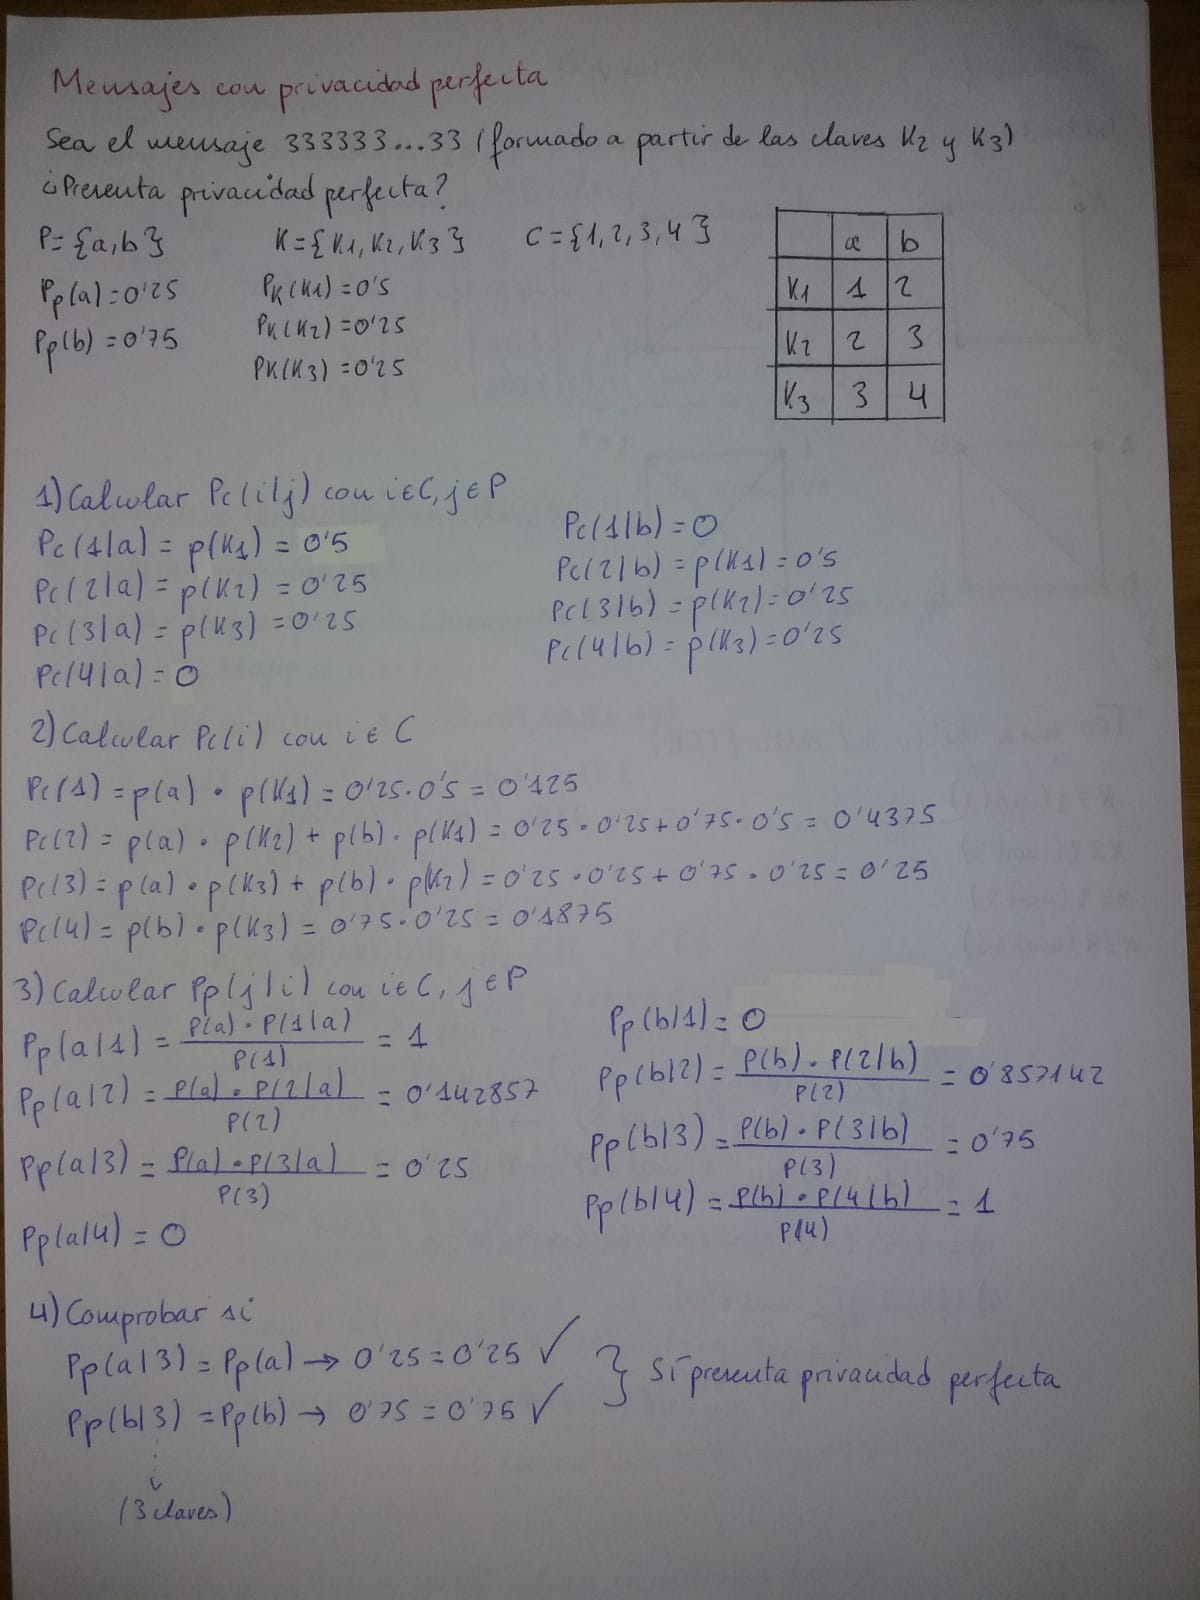 Mensajes con privacidad perfecta
Sea el mensaje 333333...33 (formado a partir de las claves K2 y K3)
¿Presenta privacidad perfecta?
P={a,b} K={K1,K2,K3} C={1,2,3,4}
Pp(a)=0'25 PK(K1)=0'5
Pp(b)=0'75 PK(K2)=0'25
PK(K3)=0'25
a b
K1 1 2
K2 2 3
K3 3 4
1) Calcular Pc(i|j) con i∈C, j∈P
Pc(1|a) = p(K1) = 0'5
Pc(2|a) = p(K2) = 0'25
Pc(3|a) = p(K3) = 0'25
Pc(4|a) = 0
Pc(1|b) = 0
Pc(2|b) = p(K1) = 0'5
Pc(3|b) = p(K2) = 0'25
Pc(4|b) = p(K3) = 0'25
2) Calcular Pc(i) con i∈C
Pc(1) = p(a) · p(K1) = 0'25·0'5 = 0'125
Pc(2) = p(a) · p(K2) + p(b) · p(K1) = 0'25·0'25+0'75·0'5 = 0'4375
Pc(3) = p(a) · p(K3) + p(b) · p(K2) = 0'25·0'25+0'75·0'25 = 0'25
Pc(4) = p(b) · p(K3) = 0'75·0'25 = 0'1875
3) Calcular Pp(j|i) con i∈C, j∈P
Pp(a|1) = P(a)·P(1|a) / P(1) = 1
Pp(a|2) = P(a)·P(2|a) / P(2) = 0'142857
Pp(a|3) = P(a)·P(3|a) / P(3) = 0'25
Pp(a|4) = 0
Pp(b|1) = 0
Pp(b|2) = P(b)·P(2|b) / P(2) = 0'857142
Pp(b|3) = P(b)·P(3|b) / P(3) = 0'75
Pp(b|4) = P(b)·P(4|b) / P(4) = 1
4) Comprobar si
Pp(a|3) = Pp(a) → 0'25 = 0'25 ✓
Pp(b|3) = Pp(b) → 0'75 = 0'75 ✓
} Sí presenta privacidad perfecta
(3 claves)